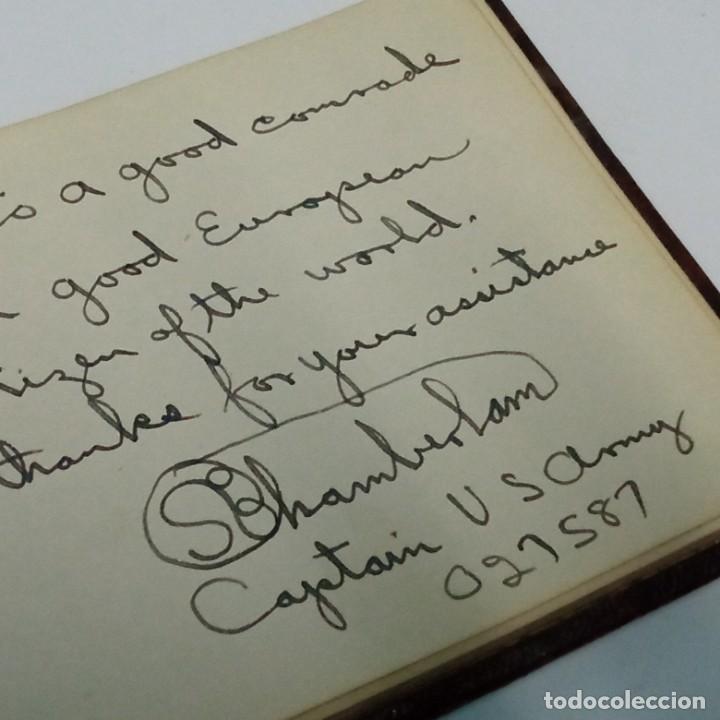 is a good comrade
a good European
tizen of the world.
thanks for your assistance
S B Chamberlain
Captain U S Army
027587
todocoleccion